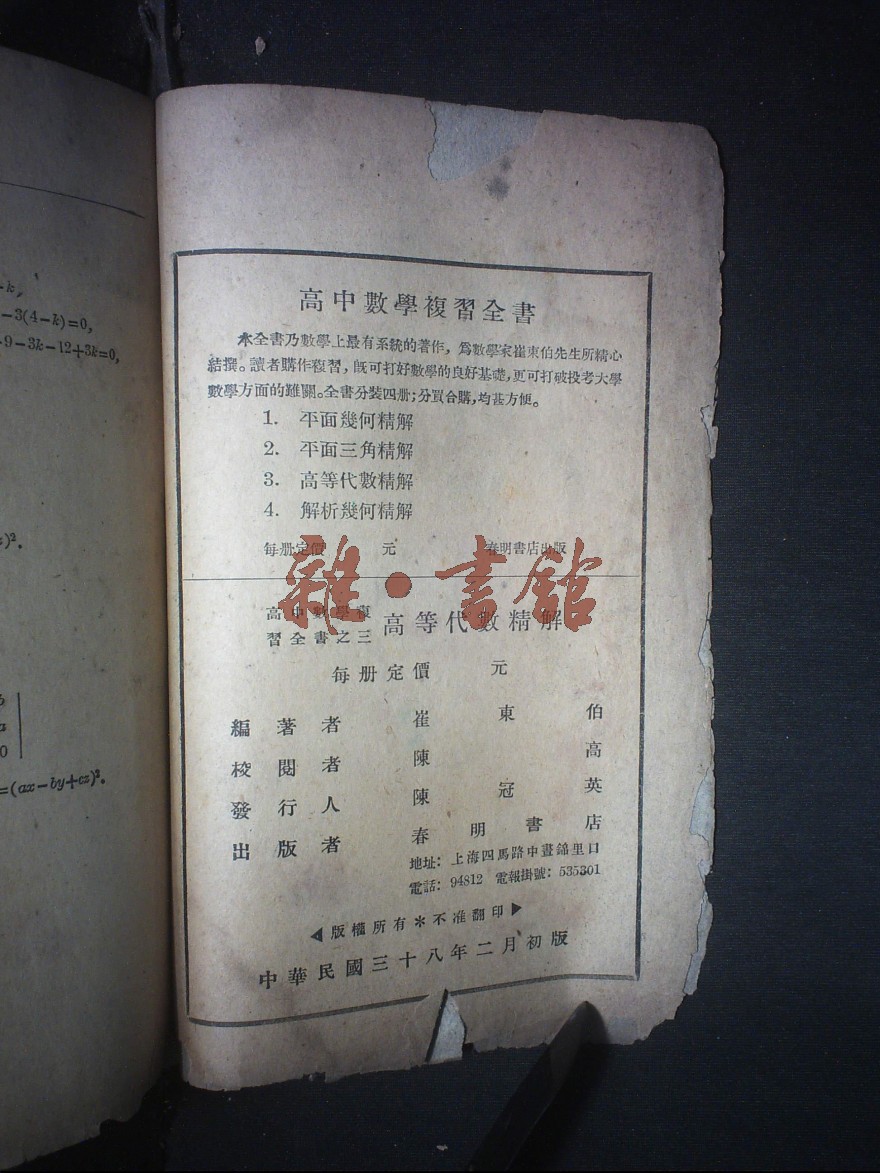 -k,
-3(4-k)=0,
-9-3k-12+3k=0,
)².
0
=(ax-by+cz)².
高中數學複習全書
本全書乃數學上最有系統的著作，爲數學家崔東伯先生所精心
結撰。讀者購作複習，既可打好數學的良好基礎，更可打破投考大學
數學方面的難關。全書分裝四册；分買合購，均甚方便。
1. 平面幾何精解
2. 平面三角精解
3. 高等代數精解
4. 解析幾何精解
每册定價 元 春明書店出版
雜·書館
高中數學復
習全書之三 高等代數精解
每册定價 元
編著者 崔東伯
校閱者 陳高
發行人 陳冠英
出版者 春明書店
地址：上海四馬路中晝錦里口
電話：94812 電報掛號：535301
◀版權所有＊不准翻印▶
中華民國三十八年二月初版